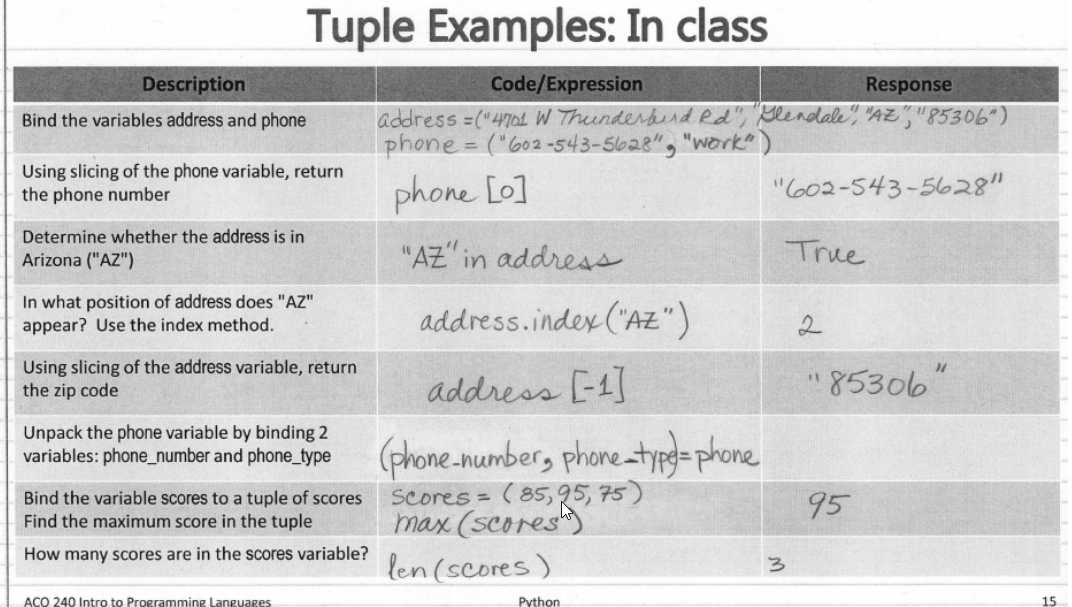 Tuple Examples: In class
Description Code/Expression Response
Bind the variables address and phone
address =("4701 W Thunderbird Rd", "Glendale", "AZ", "85306")
phone = ("602-543-5628", "work")
Using slicing of the phone variable, return
the phone number
phone [0]
"602-543-5628"
Determine whether the address is in
Arizona ("AZ")
"AZ" in address
True
In what position of address does "AZ"
appear? Use the index method.
address.index("AZ")
2
Using slicing of the address variable, return
the zip code
address [-1]
"85306"
Unpack the phone variable by binding 2
variables: phone_number and phone_type
(phone_number, phone_type)=phone
Bind the variable scores to a tuple of scores
Find the maximum score in the tuple
scores = (85,95,75)
max(scores)
95
How many scores are in the scores variable?
len(scores)
3
ACO 240 Intro to Programming Languages Python 15